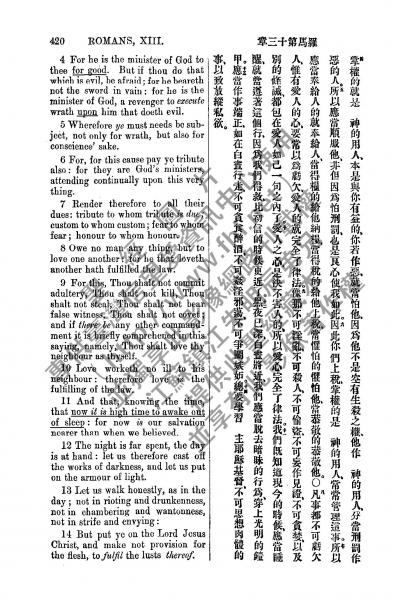 420 ROMANS, XIII. 羅馬第十三章
4 For he is the minister of God to
thee for good. But if thou do that
which is evil, be afraid; for he beareth
not the sword in vain: for he is the
minister of God, a revenger to execute
wrath upon him that doeth evil.
5 Wherefore ye must needs be sub-
ject, not only for wrath, but also for
conscience' sake.
6 For, for this cause pay ye tribute
also: for they are God's ministers,
attending continually upon this very
thing.
7 Render therefore to all their
dues: tribute to whom tribute is due;
custom to whom custom; fear to whom
fear; honour to whom honour.
8 Owe no man any thing, but to
love one another: for he that loveth
another hath fulfilled the law.
9 For this, Thou shalt not commit
adultery, Thou shalt not kill, Thou
shalt not steal, Thou shalt not bear
false witness, Thou shalt not covet;
and if there be any other command-
ment it is briefly comprehended in this
saying, namely, Thou shalt love thy
neighbour as thyself.
10 Love worketh no ill to his
neighbour: therefore love is the
fulfilling of the law.
11 And that, knowing the time,
that now it is high time to awake out
of sleep: for now is our salvation
nearer than when we believed.
12 The night is far spent, the day
is at hand: let us therefore cast off
the works of darkness, and let us put
on the armour of light.
13 Let us walk honestly, as in the
day; not in rioting and drunkenness,
not in chambering and wantonness,
not in strife and envying:
14 But put ye on the Lord Jesus
Christ, and make not provision for
the flesh, to fulfil the lusts thereof.
掌權的就是 神的用人本是與你有益的你若作惡就當怕他因為他不是空有生殺之權他作 神的用人分當刑罰作
惡的人所以應當順嚴他非但因為怕刑罰也是良心使我如此因此你們上稅掌權的是 神的用人常常管理這事所以
應當奉給人的就奉給人當得糧的給他納糧當得稅的給他上稅當懼怕的懼怕他當恭敬的恭敬他○凡事都不可虧欠
人惟有愛人的心要常以為虧欠愛人的就完全了律法像那不可姦淫不可殺人不可偷盜不可妄作見證不可貪婪以及
別的條誡都包在愛人如己一句之內了愛人之心是決不害人的所以愛心完全了律法我們既知道現今的時候應當睡
醒就當遵著這個行因為我們得救比初信的時候更近了黑夜已深白晝將近我們應當脫去暗昧的行為穿上光明的鎧
甲應當作事端正如在白晝行走不可貪食醉酒不可姦淫邪蕩不可爭鬬嫉妬總要學習 主耶穌基督不可思想肉體的
事以致放縱私慾